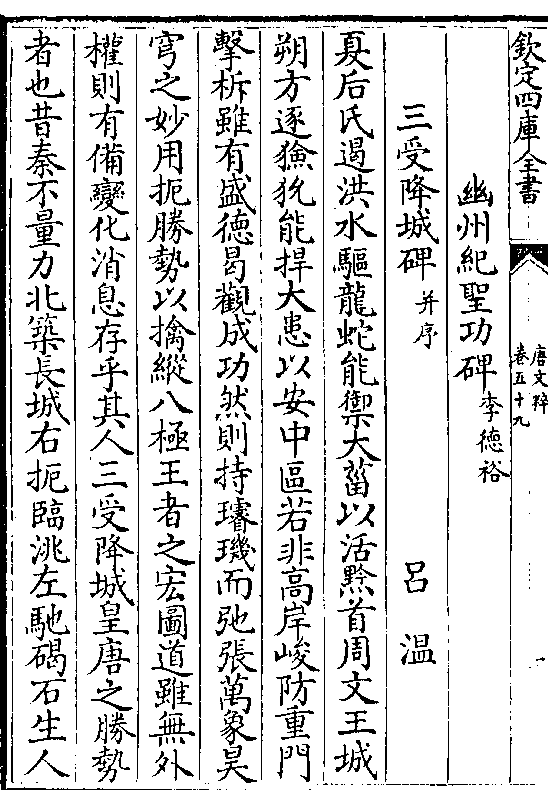 欽定四庫全書
唐文粹
卷五十九
幽州紀聖功碑李德裕
三受降城碑并序 呂溫
夏后氏遏洪水驅龍蛇能禦大菑以活黔首周文王城
朔方逐獫狁能捍大患以安中區若非高岸峻防重門
擊柝雖有盛德曷觀成功然則持璿璣而弛張萬象昊
穹之妙用扼勝勢以擒縱八極王者之宏圖道雖無外
權則有備變化消息存乎其人三受降城皇唐之勝勢
者也昔秦不量力北築長城右扼臨洮左馳碣石生人